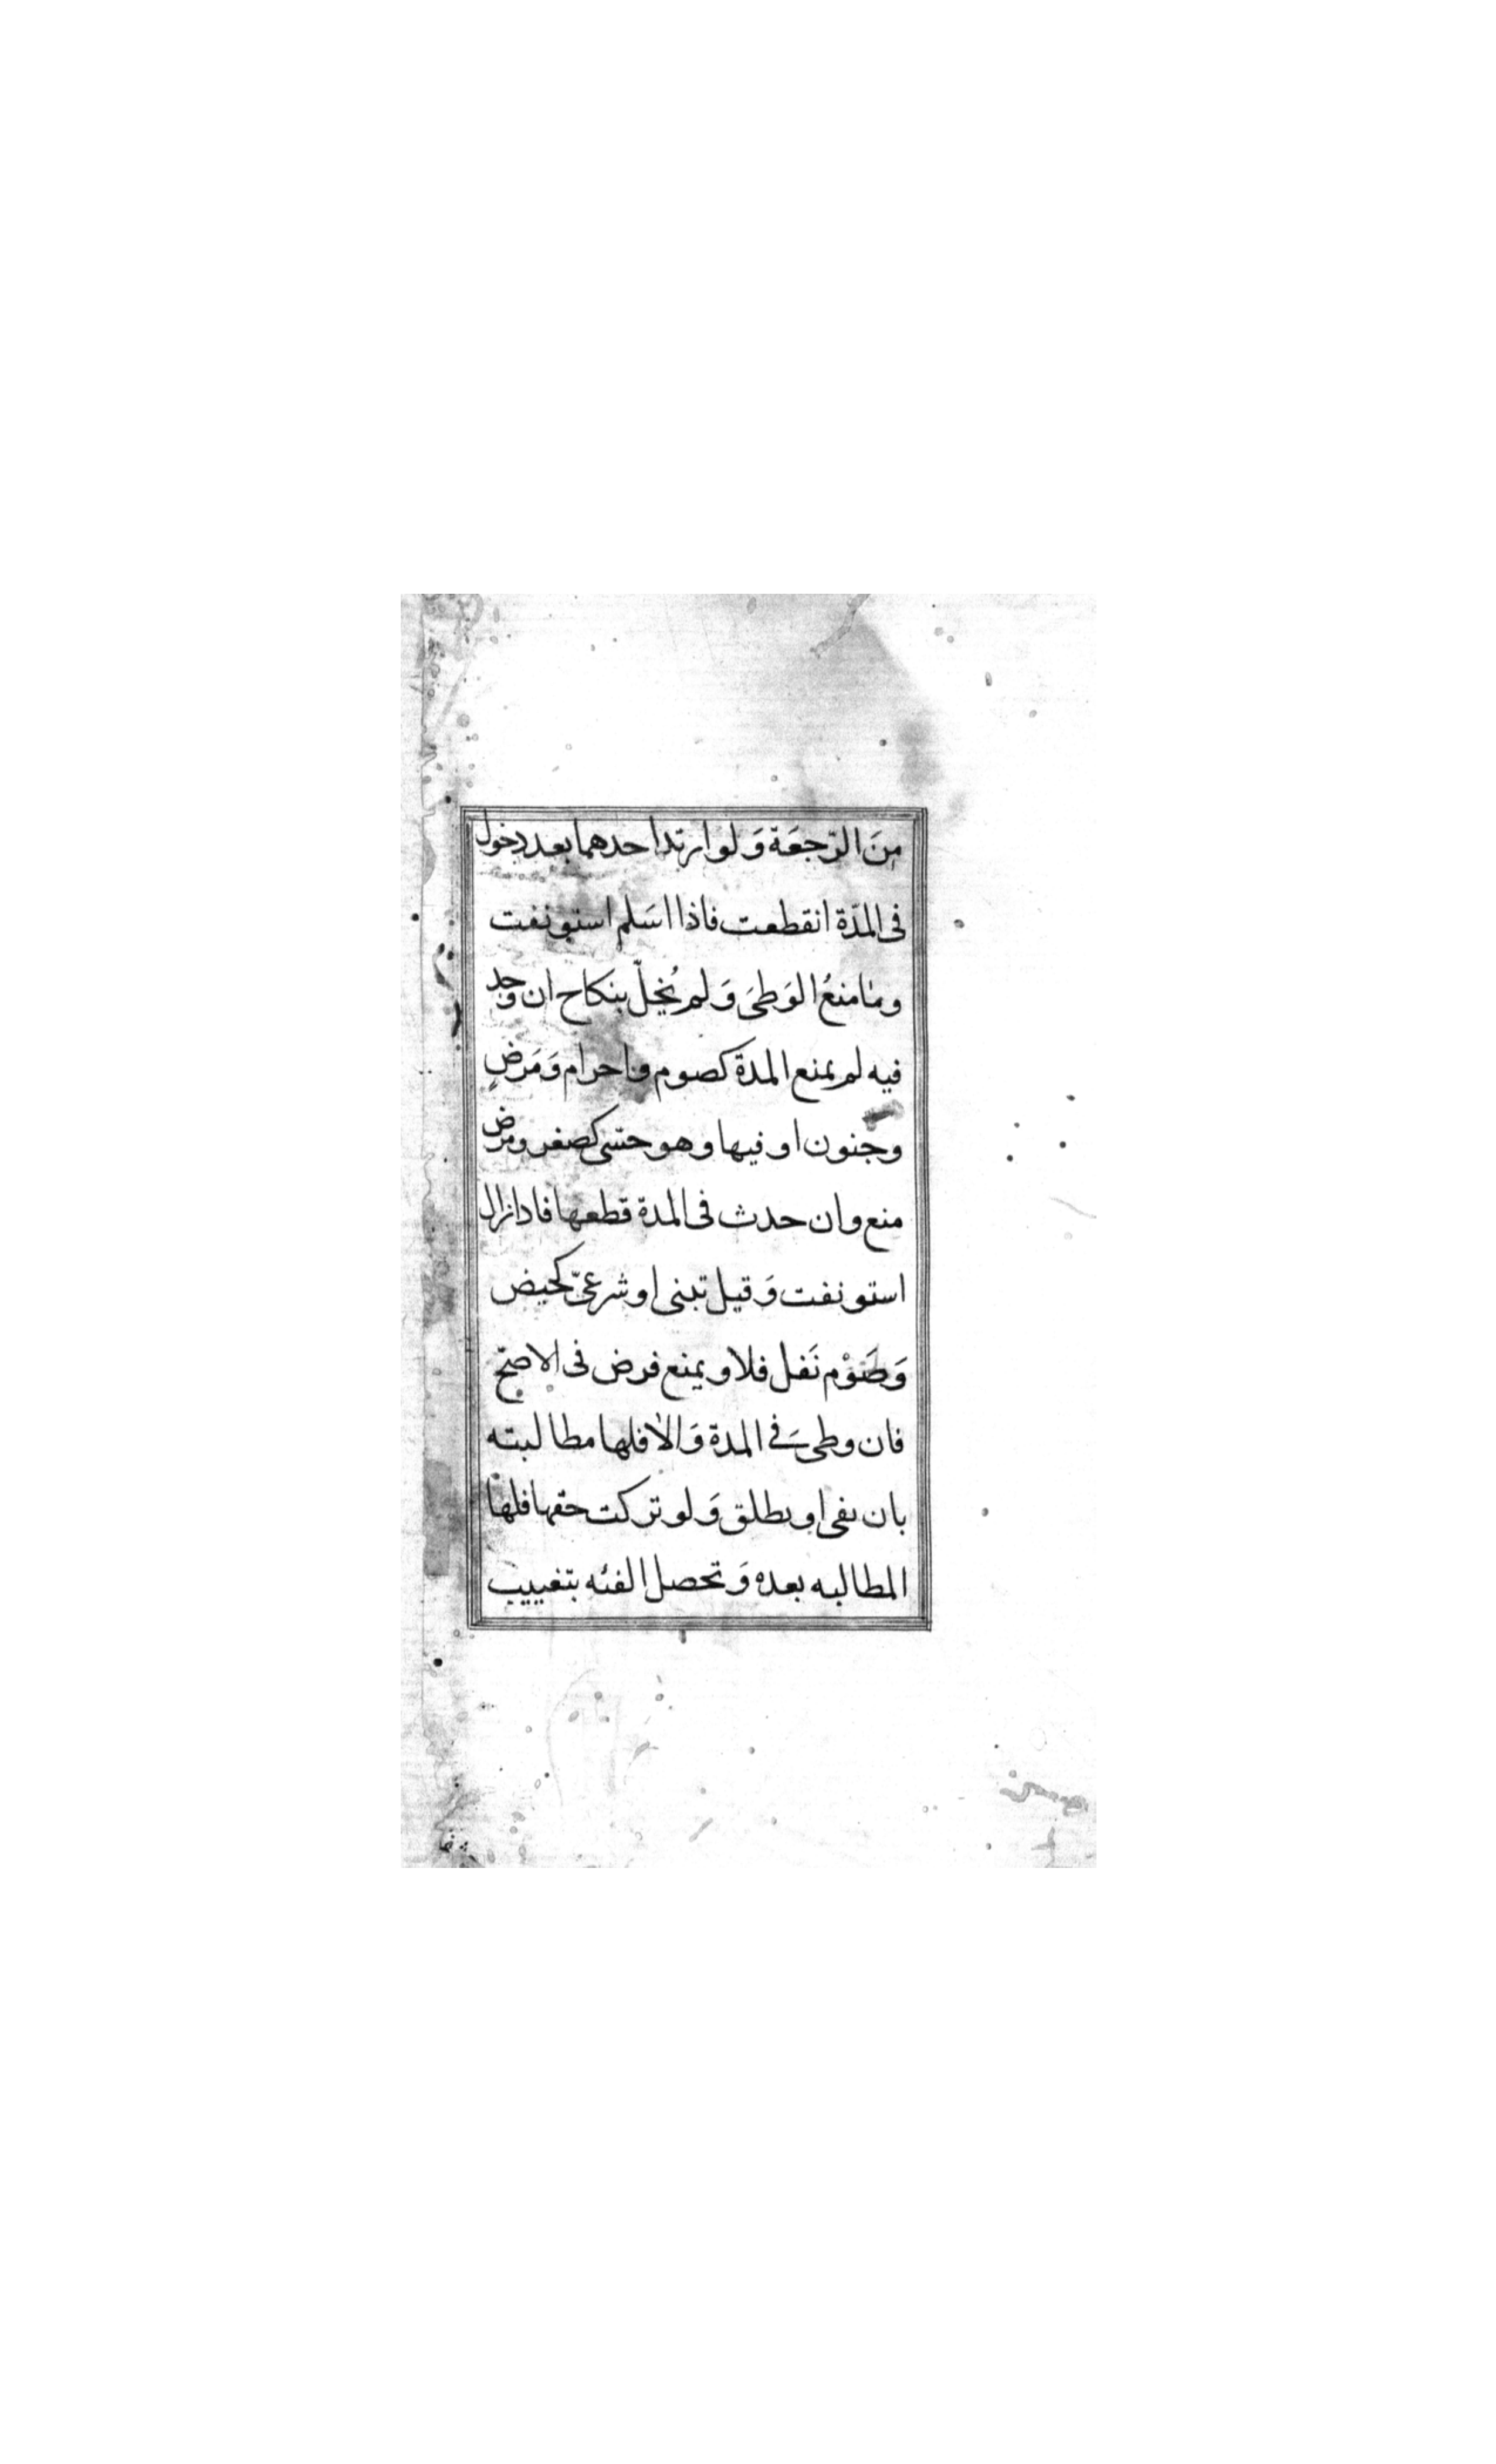 مِنَ الرّجعَة وَ لو ارتدّ احدهما بعد دخول
فى المدّة انقطعت فاذا اسَلم استونفت
وما منعُ الوَطىَ وَ لم يُخلّ بنكاح ان وجد
فيه لم يمنع المدة كصوم واحرام وَمَرَضٍ
وجنون او فيها وهو حسّى كصغر ومرض
منع وان حدث فى المدة قطعها فاذا زال
استونفت وَ قيل تبنى او شرعىّ كحيض
وَصَوْم نَفل فلا ويمنع فرض فى الاصحّ
فان وطىَ فى المدة وَالا فلها مطالبته
بان يفى او يطلق وَ لو تركت حقها فلها
المطالبه بعده وَ تحصل الفئه بتغييب